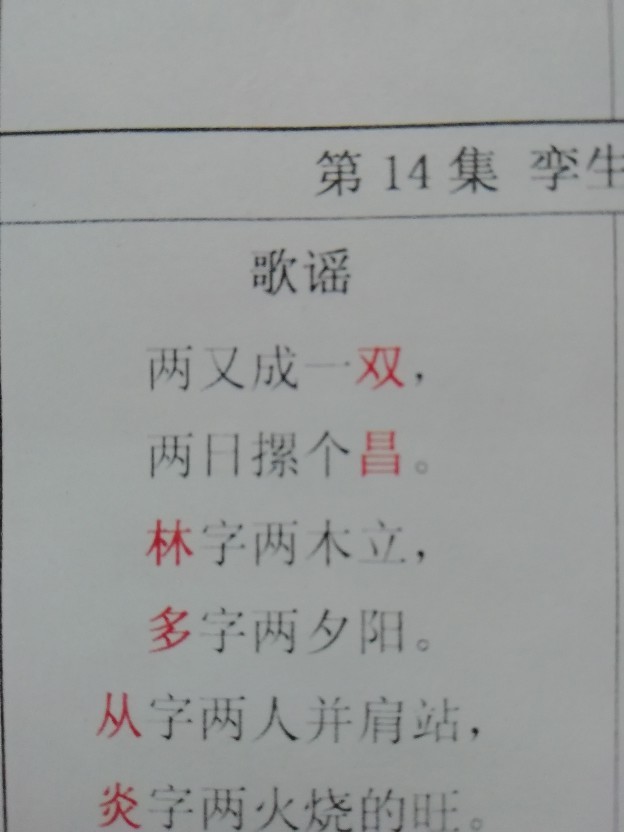 第 14 集 孪生
歌谣
两又成一双，
两日摞个昌。
林字两木立，
多字两夕阳。
从字两人并肩站，
炎字两火烧的旺。